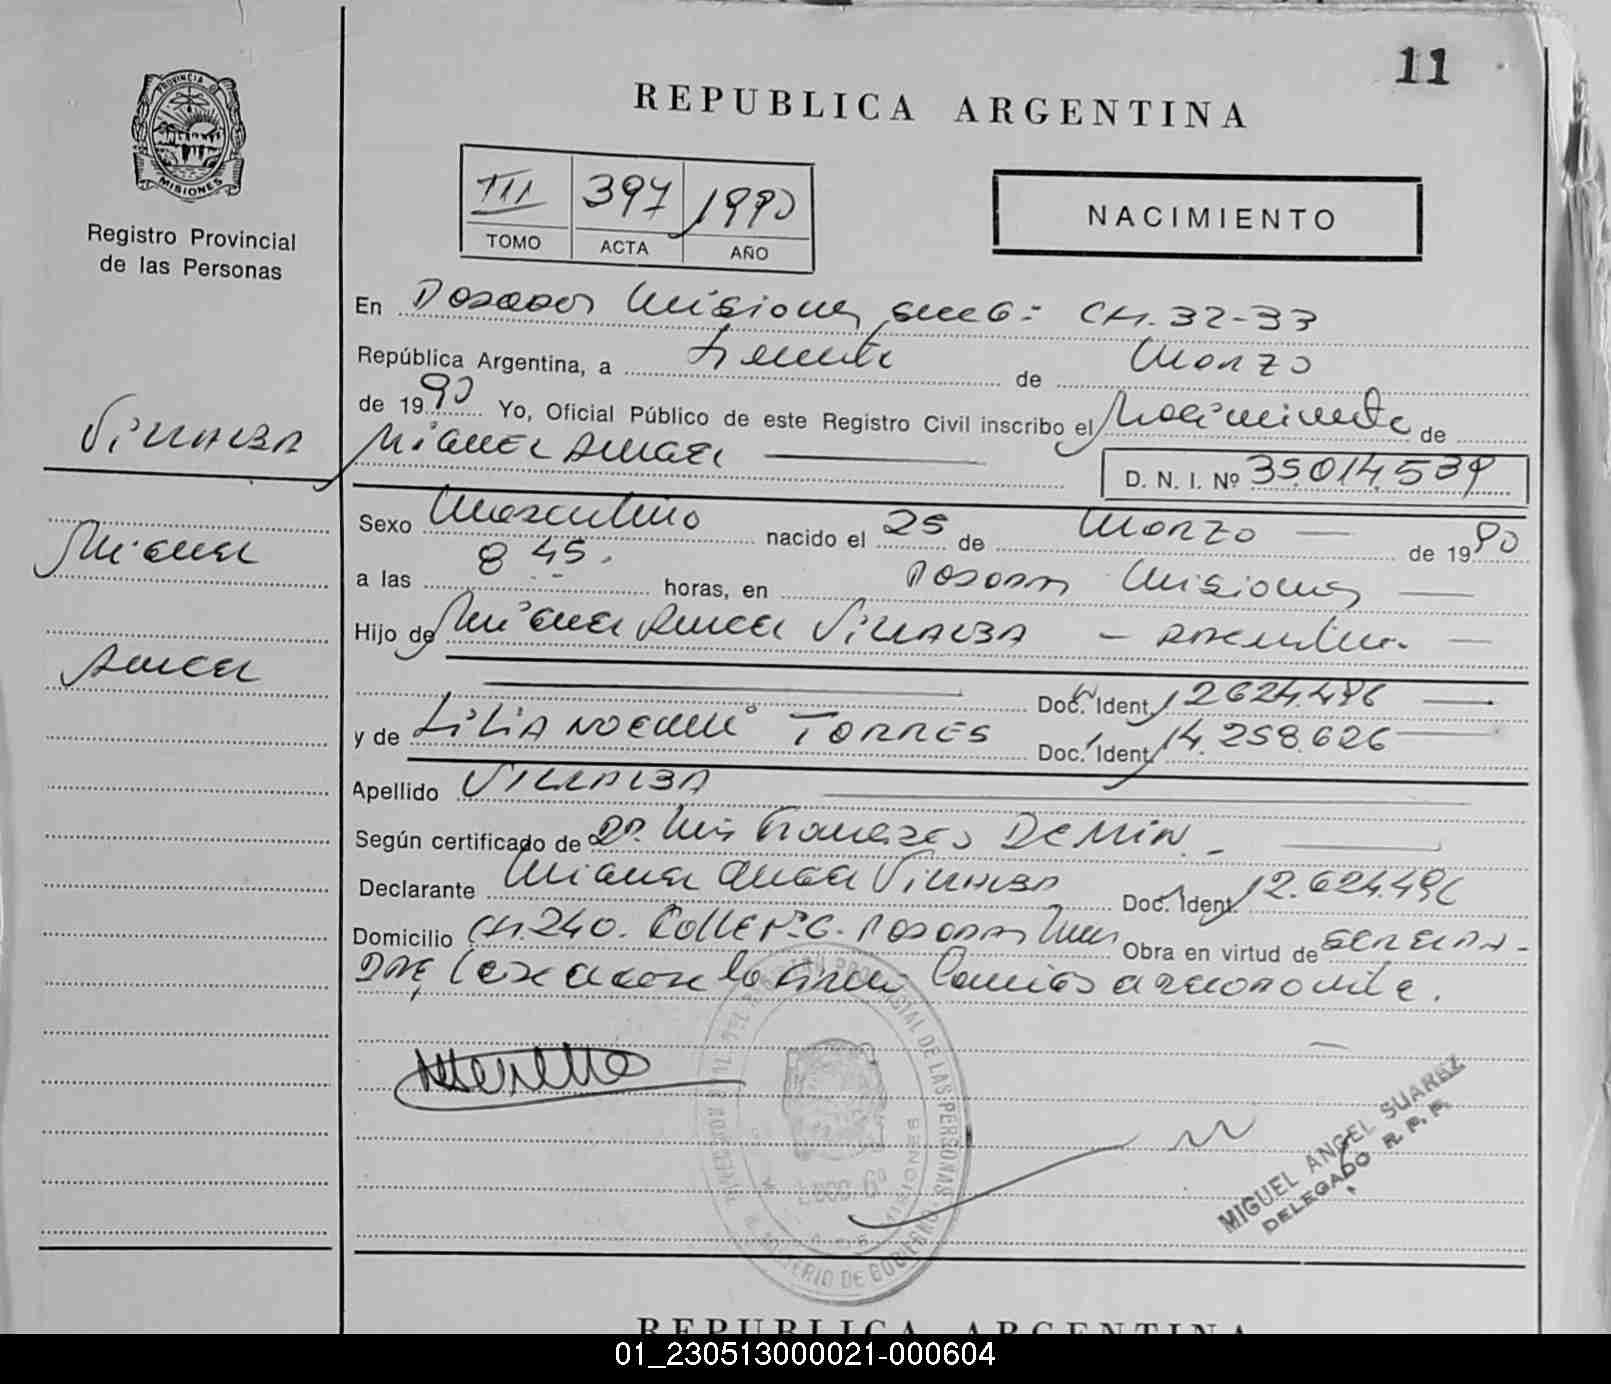 11
REPUBLICA ARGENTINA
PROVINCIA DE
MISIONES
Registro Provincial
de las Personas
III 397 1990
TOMO ACTA AÑO
NACIMIENTO
En Posadas Misiones Secc 6: CH. 32-33
República Argentina, a treinta de Marzo
de 1990 Yo, Oficial Público de este Registro Civil inscribo el Nacimiento de
MIGUEL ANGEL
D. N. I. Nº 35.014.539
VILLALBA
Miguel
Angel
Sexo Masculino nacido el 25 de Marzo de 1990
a las 8 45. horas, en Posadas Misiones
Hijo de Miguel Angel VILLALBA - Argentino.
Doc. Ident. 12.624.496
y de LILIA NOEMI TORRES Doc. Ident. 14.258.626
Apellido VILLALBA
Según certificado de Dr. Luis
Declarante Miguel Angel Villalba Doc. Ident. 12.624.496
Domicilio CH. 240. Calle Nº 6. Posadas Mnes Obra en virtud de
Leída el acta la firma conmigo el
PROVINCIAL DE LAS PERSONAS
MISIONES
MINISTERIO DE GOBIERNO
MIGUEL ANGEL SUAREZ
DELEGADO R. P. P.
REPUBLICA ARGENTINA
01_230513000021-000604